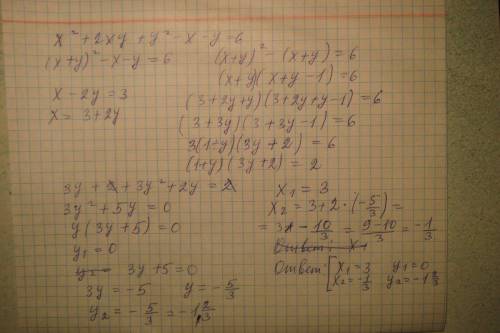 x² + 2xy + y² - x - y = 6
(x+y)² - x - y = 6
(x+y)² - (x+y) = 6
(x+y)(x+y-1) = 6
x - 2y = 3
x = 3+2y
(3+2y+y)(3+2y+y-1) = 6
(3+3y)(3+3y-1) = 6
3(1+y)(3y+2) = 6
(1+y)(3y+2) = 2
3y + 2 + 3y² + 2y = 2
3y² + 5y = 0
y(3y+5) = 0
y₁ = 0
y₂ = 3y+5=0
3y = -5 y = -5/3
y₂ = -5/3 = -1 2/3
x₁ = 3
x₂ = 3+2·(-5/3) =
= 3 - 10/3 = (9-10)/3 = -1/3
Ответ: x₁
Ответ: [x₁=3 y₁=0
x₂=-1/3 y₂=-1 2/3